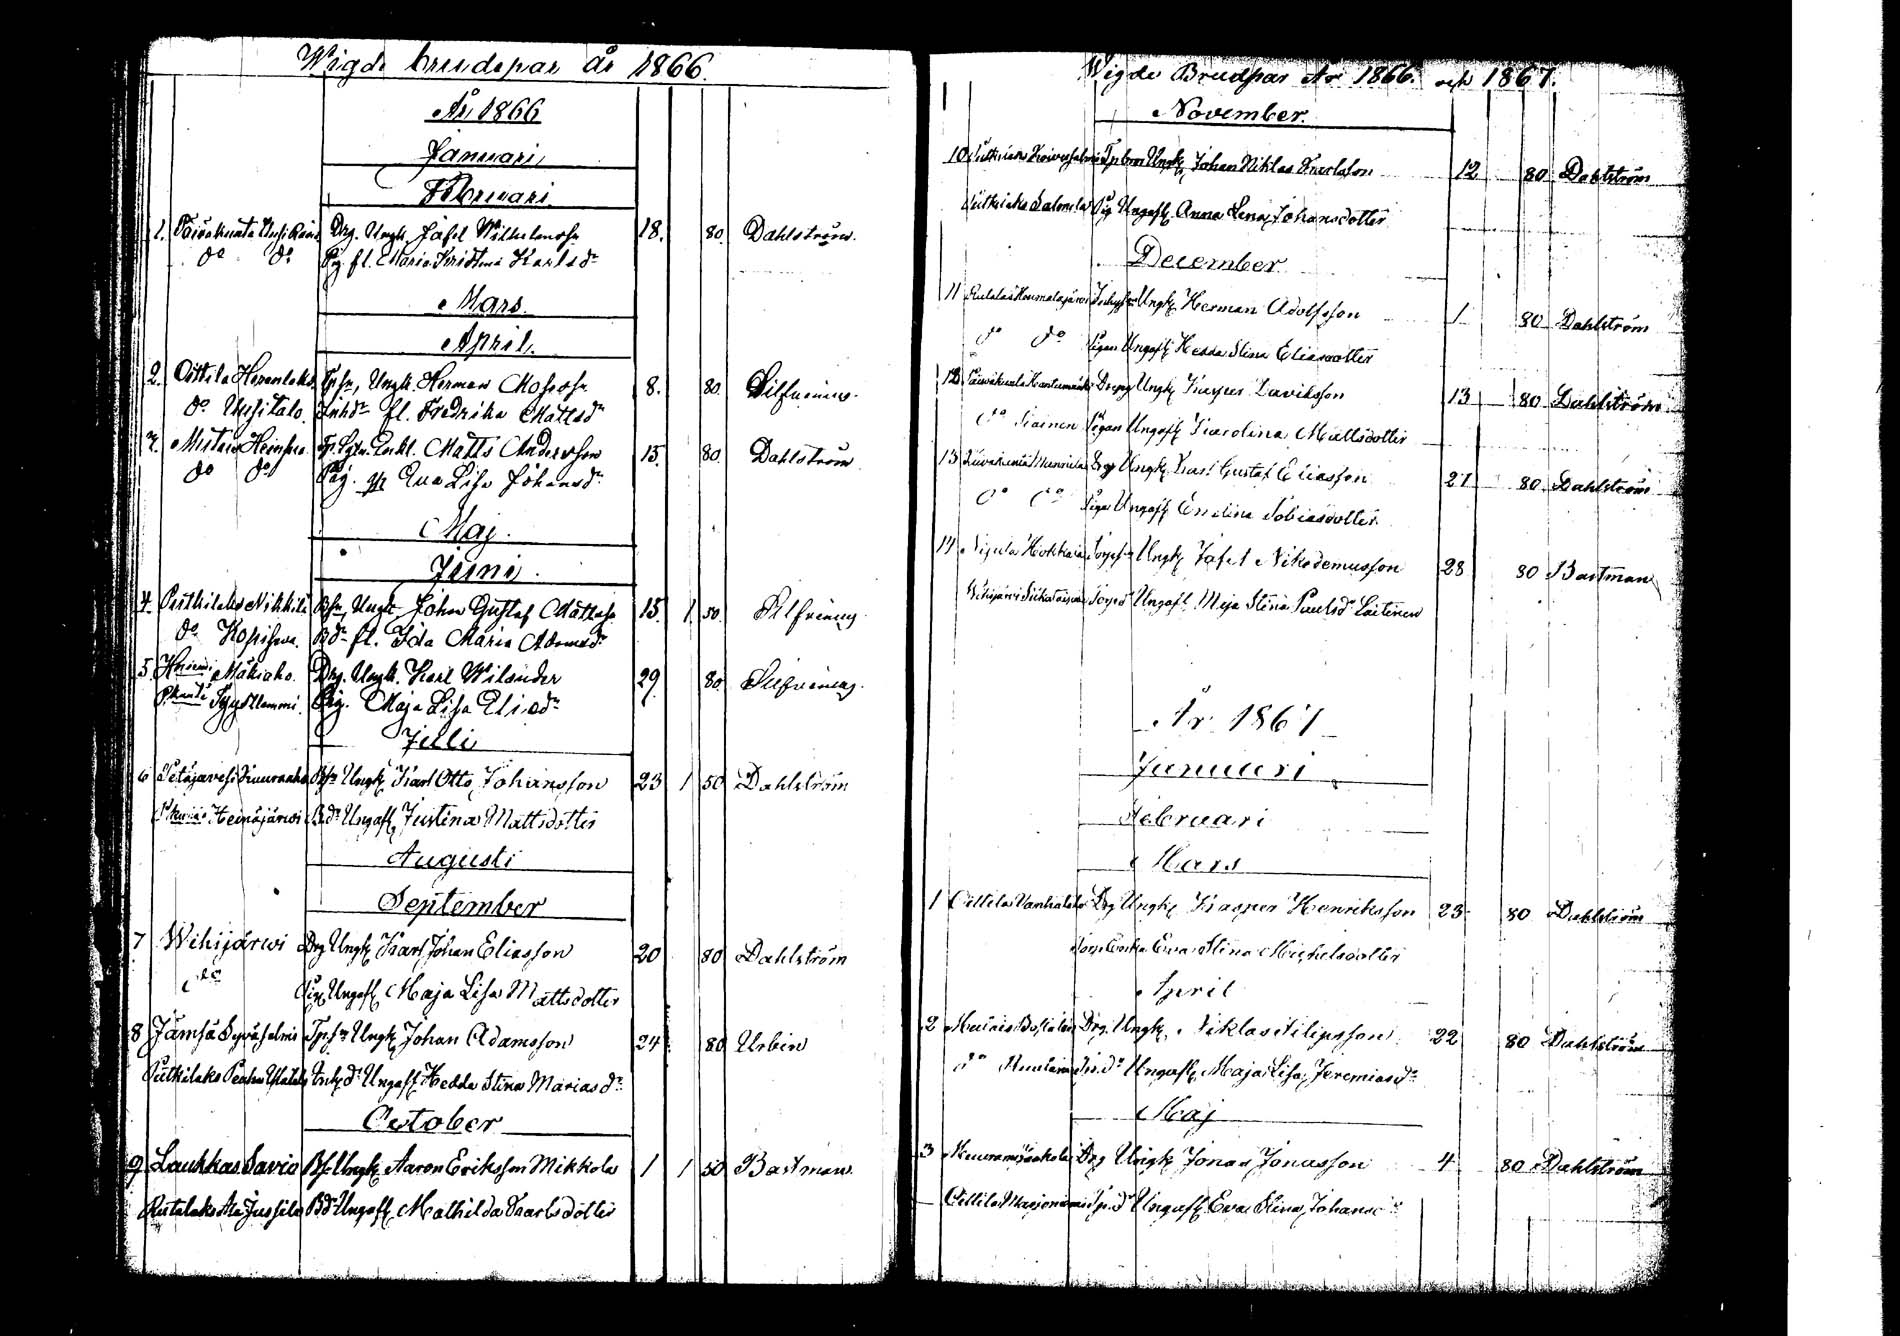 Wigde brudepar år 1866.
År 1866
Januari
Februari
1. Päiväkunta Drg. Ungk. Jafet Wilhelmssn 18. 80. Dahlström.
do do Pig. fl. Maria Kristina Karlsdr
Mars.
April.
2. Oittila Ungk. Herman Mosessn 8. 80. Silfvenius.
do Uusitalo. Inhdr fl. Fredrika Mattsdr
3. Enkl. Matts Andersson 15. 80. Dahlström
do do Pig. Eva Lisa Johansdr
Maj.
Juni.
4. Putkilaks Nikkilä Bsn, Ungk. Johan Gustaf Mattssn 15. 1 50. Silfvenius
do Bdr fl. Ida Maria Adamsdr
5. Mäkiaho. Drg. Ungk. Karl Wilander 29. 80. Silfvenius.
Pig. Maja Lisa Eliedr
Juli
6 Petäjävesi Bsn Ungk. Karl Otto Johansson 23 1 50 Dahlström
Heinäjärwi Bdr Ungafl. Justina Mattsdotter
Augusti
September
7 Wihijärwi Drg Ungk. Karl Johan Eliasson 20 80 Dahlström
do Pig. Ungafl. Maja Lisa Mattsdotter
8 Jämsä Tpsn Ungk. Johan Adamsson 24 80 Urbin
Putkilaks Inhdr Ungafl. Hedda Stina Mariasdr
October
9 Laukkas Savio Bsn Ungk. Aaron Eriksson Mikkola 1 1 50 Bastman
Rutalaks Ala Jussila Bdr Ungafl. Mathilda Karlsdotter
Wigde Brudpar År 1866. och 1867.
November.
10 Putkilaks Ungk. Johan Niklas Karlsson 12 80 Dahlström
Putkilaks Salomela Pig Ungafl. Anna Lena Johansdotter
December
11 Rutalaks Ungk. Herman Adolfsson 1 80 Dahlström
do do Pigan Ungafl. Hedda Stina Eliasdotter
12 Päiväkunta Dreng Ungk. Kasper Davidsson 13 80 Dahlström
do Pigan Ungafl. Karolina Mattsdotter
13 Päiväkunta Drg Ungk. Karl Gustaf Eliasson 21 80 Dahlström
do do Pigan Ungafl. Endina Tobiasdotter
14 Nisula Hokkala Torpsn Ungk. Jafet Nikodemusson 28 80 Bastman
Wihijärvi Torpdr Ungafl. Maja Stina Paulsdr Laitinen
År 1867
Januari
Februari
Mars
1 Oittila Vanhatalo Drg Ungk. Kasper Henriksson 23 80 Dahlström
Enka Eva Stina Michelsdotter
April
2 Drg. Ungk. Niklas Filipsson 22 80 Dahlström
do Ungafl. Maja Lisa Jeremiasdr
Maj
3 Drg Ungk. Jonas Jonasson 4 80 Dahlström
Oittila Tp.dr Ungafl. Eva Stina Johansdr